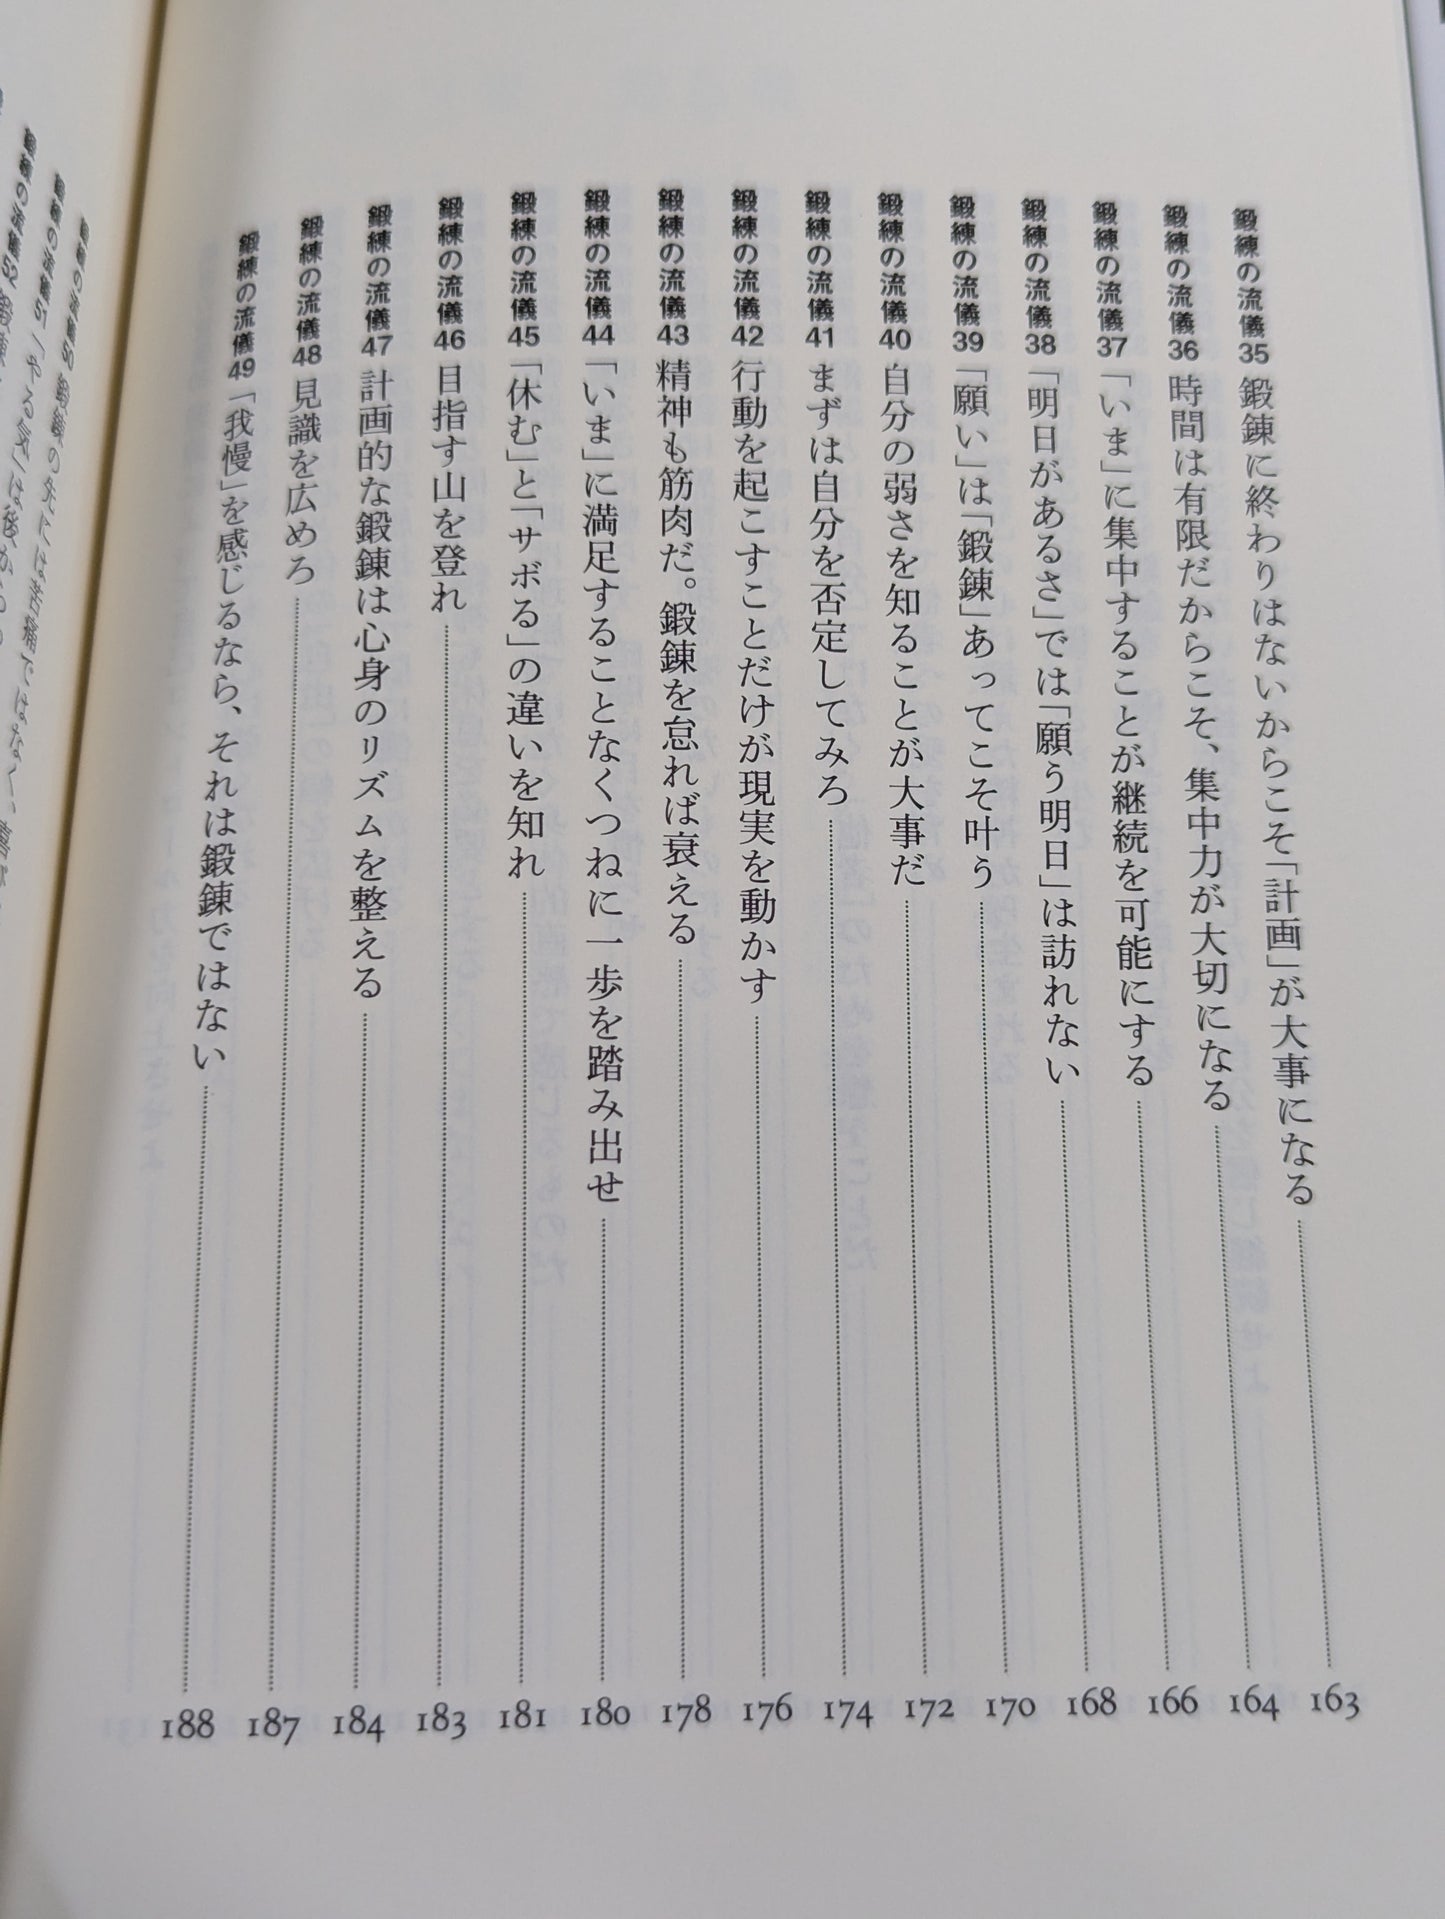 鍛練の流儀35 鍛錬に終わりはないからこそ「計画」が大事になる 163
鍛練の流儀36 時間は有限だからこそ、集中力が大切になる 164
鍛練の流儀37 「いま」に集中することが継続を可能にする 166
鍛練の流儀38 「明日があるさ」では「願う明日」は訪れない 168
鍛練の流儀39 「願い」は「鍛錬」あってこそ叶う 170
鍛練の流儀40 自分の弱さを知ることが大事だ 172
鍛練の流儀41 まずは自分を否定してみろ 174
鍛練の流儀42 行動を起こすことだけが現実を動かす 176
鍛練の流儀43 精神も筋肉だ。鍛錬を怠れば衰える 178
鍛練の流儀44 「いま」に満足することなくつねに一歩を踏み出せ 180
鍛練の流儀45 「休む」と「サボる」の違いを知れ 181
鍛練の流儀46 目指す山を登れ 183
鍛練の流儀47 計画的な鍛錬は心身のリズムを整える 184
鍛練の流儀48 見識を広めろ 187
鍛練の流儀49 「我慢」を感じるなら、それは鍛錬ではない 188
鍛練の流儀50 鍛錬の先には苦痛ではなく、喜び
鍛練の流儀51 「やる気」は後から
鍛練の流儀52 鍛錬